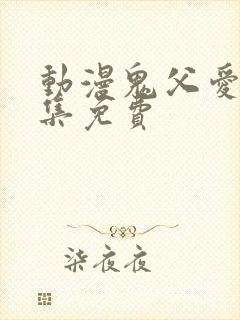 動漫鬼父愛
集免費
柒夜夜